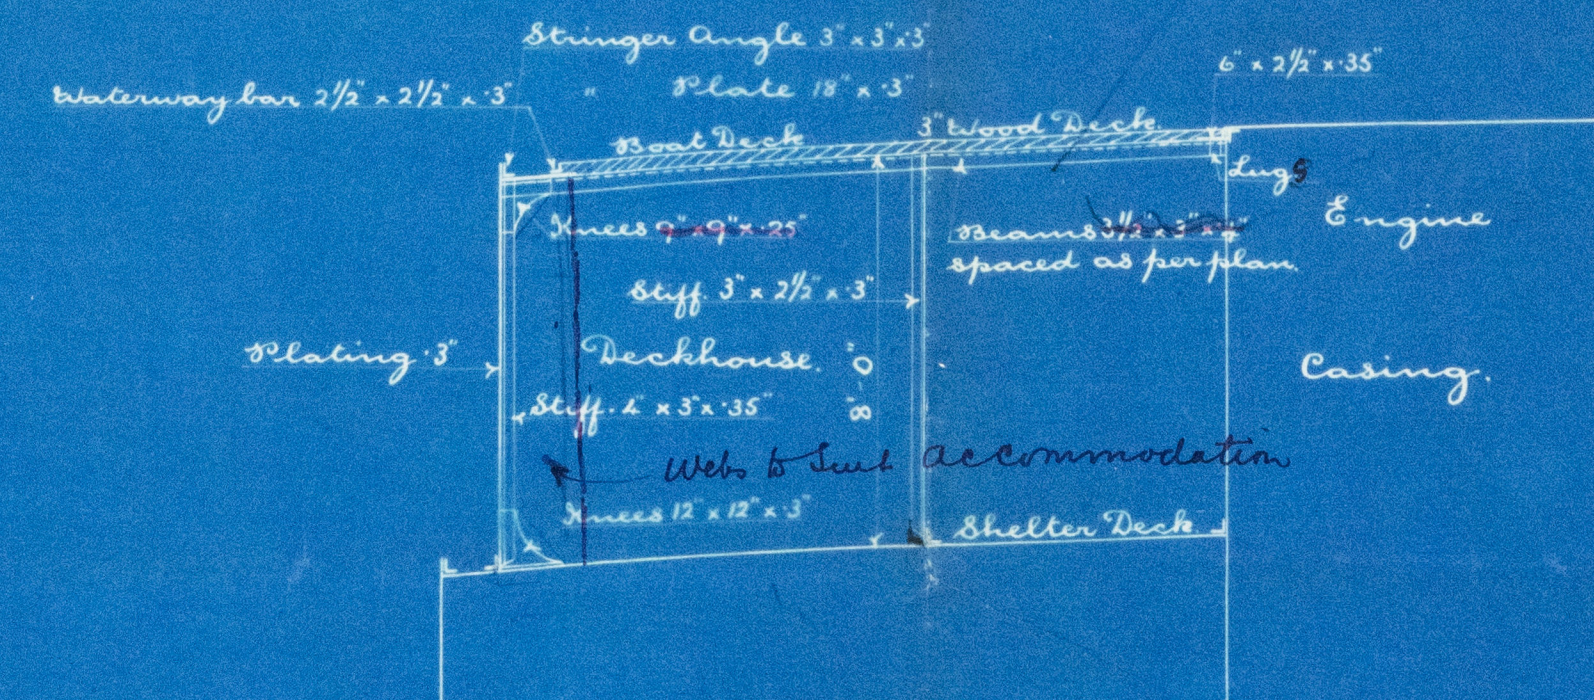 Stringer Angle 3" x 3" x .3"
" Plate 18" x .3"
6" x 2½" x .35"
Waterway bar 2½" x 2½" x .3"
Boat Deck
3" Wood Deck
Lugs
Knees 9" x 9" x .25"
Beams 3½" x 3" x
spaced as per plan.
Engine
Casing.
Stiff. 3" x 2½" x .3"
Plating .3"
Deckhouse.
8' 0"
Stiff. 4" x 3" x .35"
Webs to Suit accommodation
Knees 12" x 12" x .3"
Shelter Deck